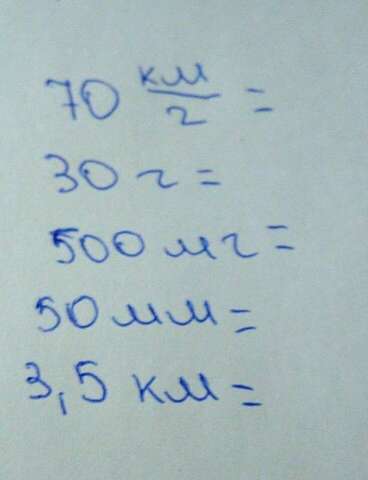 70 км/г =
30 г =
500 мг =
50 мм =
3,5 км =